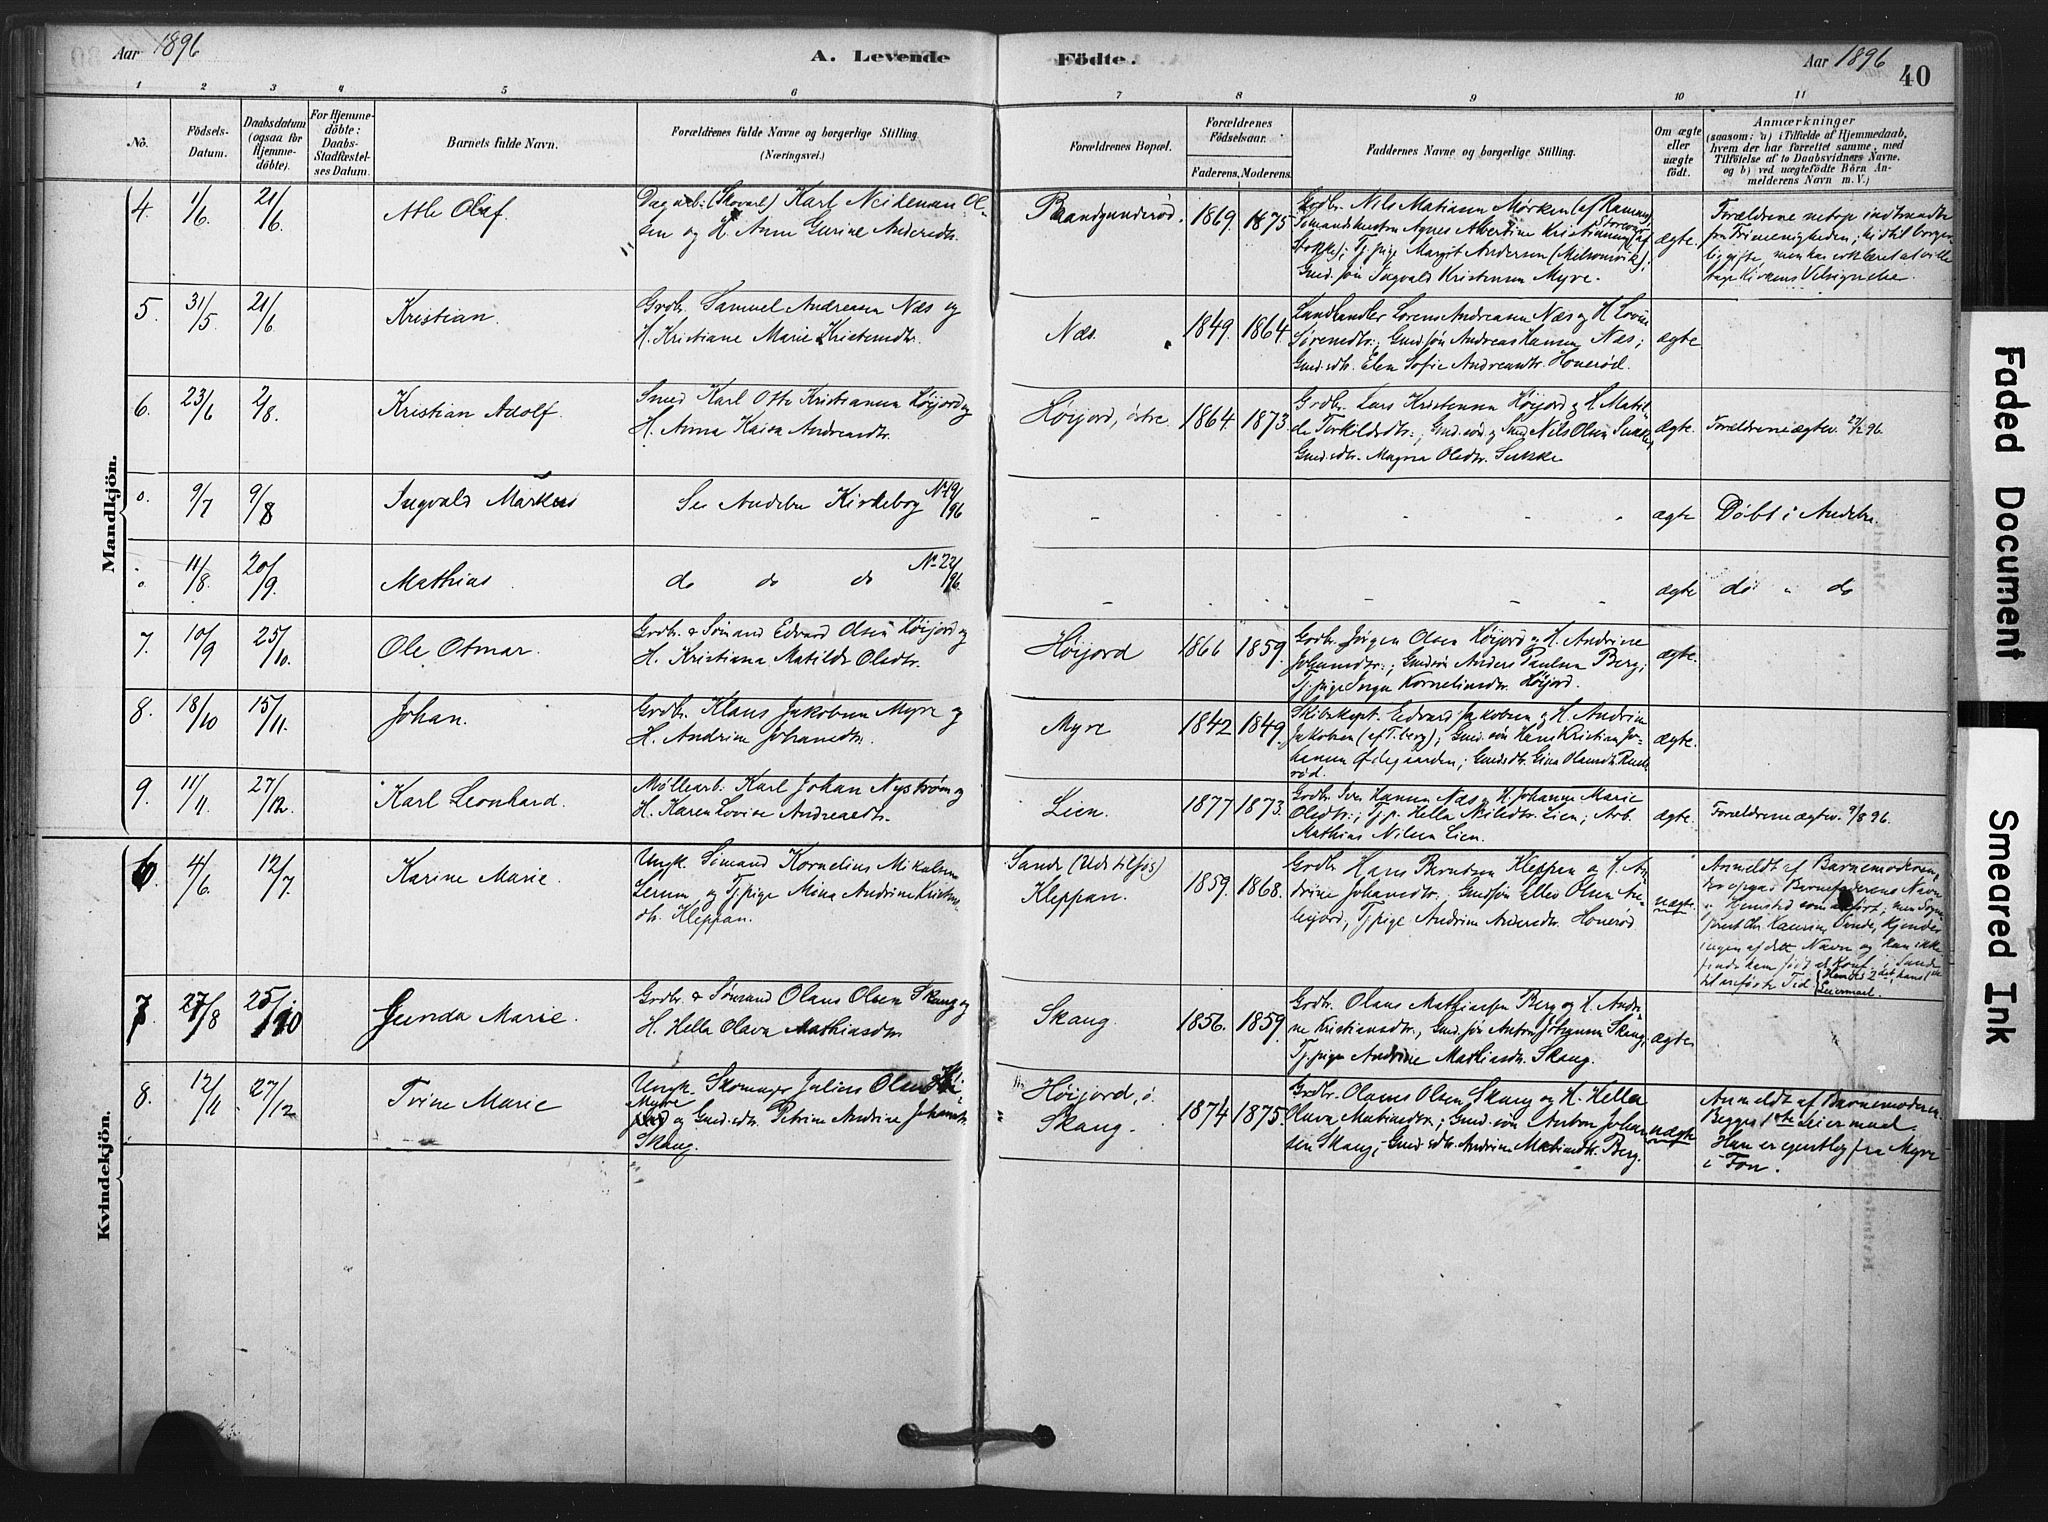 Aar 1896 A. Levende Födte. Aar 1896 40
1 2 3 4 5 6 7 8 9 10 11
No. Födsels-Datum. Daabsdatum (ogsaa for Hjemmedöbte). For Hjemmedöbte: Daabs-Stadfæstelses Datum. Barnets fulde Navn. Forældrenes fulde Navne og borgerlige Stilling. (Næringsvei.) Forældrenes Bopæl. Forældrenes Födselsaar. Faderens. Moderens. Faddernes Navne og borgerlige Stilling. Om ægte eller uægte födt. Anmærkninger (saasom: a) i Tilfælde af Hjemmedaab, hvem der har forrettet samme, med Tilföielse af to Daabsvidners Navne, og b) ved uægtefödte Börn Anmelderens Navn m. V.)
Mandkjön.
4. 1/6. 21/6. Atle Olaf.
Karl Neideman Ol-
sen og H. Anne Gurine Andersdtr.
Brandgunderød. 1869. 1875
Grdbr. Nils Matiasen Mørken (af Ramnes)
Agnes Albertine Kristiansen (af
Stokke); Tj. pige Margit Andersen (Melsomvik);
Gmd. søn Ingvald Kristensen Myre.
ægte.
Forældrene netop indflyttede
fra Frimenigheden; hidtil borger-
lig gifte, men har erklæret at ville
tage Kirkens Velsignelse.
5. 31/5. 21/6 Kristian.
Grdbr. Samuel Andreasen Næs og
H. Kristiane Marie Kristensdtr.
Næs. 1849. 1864.
Landhandler Lorens Andreasen Næs og H. Lovise
Sørensdtr.; Gmd. søn Andreas Hansen Næs;
Gmd. dtr. Elen Sofie Andreasdtr. Honerød.
ægte
6. 23/6 2/8. Kristian Adolf.
Smed Karl Otto Kristiansen Høijord og
H. Anna Kaisa Andreasdtr.
Høijord, østre. 1864. 1873.
Grdbr. Lars Kristensen Høijord og H. Matil-
de Torkildsdtr.; Nils Olsen Sukke,
Gmd. dtr. Magna Olsdtr. Sukke
ægte. Forældrene ægtev. 96.
o. 9/7 9/8 Ingvald Markus
Se Andebu Kirkebog No 19/96
- - - - - ægte Døbt i Andebu.
o. 11/8. 20/9. Mathias.
do do do No 22/96.
- - - - - ægte do " do
7. 10/9 25/10. Ole Otmar.
Grdbr. & Sømand Edvard Olsen Høijord og
H. Kristiana Matilde Olsdtr.
Høijord 1866 1859.
Grdbr. Jørgen Olsen Høijord og H. Andrine
Johannesdtr.; Gmd. søn Anders Paulsen Berg;
Tj. pige Inga Korneliusdtr. Høijord.
ægte.
8. 18/10 15/11. Johan.
Grdbr. Klaus Jakobsen Myre og
H. Andrine Johansdtr.
Myre 1842 1849.
Skibskapt. Edvard Jakobsen og H. Andrine
Jakobsen (af T.berg); Gmd. søn Hans Kristian Jo-
hansen Ødegaarden; Gmd. dtr. Gina Olausdtr.
ægte.
9. 11/11. 27/12. Karl Leonhard.
Møllearb. Karl Johan Nystrøm og
H. Karen Lovise Andreasdtr.
Lien. 1877 1873.
Grdbr. Iver Hansen Næs og H. Johanne Marie
Olsdtr.; Tj. p. Hella Nilsdtr. Lien; Arb.
Mathias Nilsen Lien.
ægte. Forældrene ægtev. 9/8 96.
Kvindekjön.
6. 4/6. 12/7. Karine Marie.
Ungk. Sømand Kornelius Mikalsen
og Tj. pige Mina Andrine Kristens-
dtr. Kleppan.
Sande (Ude tilsjøs)
Kleppan. 1859. 1868.
Grdbr. Hans Berntsen Kleppen og H. An-
drine Johansdtr.; Gmd. søn Ellef Olsen
Tj. pige Andrine Andersdtr. Honerød
uægte.
Anmeldt af Barnemoderen,
der opgav Barnefaderens Navn
og Hjemsted som anført; men Sogne-
præst Chr. Laurin, Sande, kjender
ingen af dette Navn og kan ikke
finde ham født el. Konf. i Sande
til anførte Tid. (Hendes 2det, hans 1ste
Leiermaal.
7. 27/8 25/10 Gunda Marie.
Grdbr. & Sømand Olaus Olsen Skaug og
H. Hella Olava Mathiasdtr.
Skaug. 1856. 1859.
Grdbr. Olaus Mathiassen Berg og H. Andri-
ne Kristiansdtr., Gmd. søn Anton Johansen Skaug,
Tj. pige Andrine Mathiasdtr. Skaug.
ægte
8. 12/11 27/12 Trine Marie
Ungk. Skomager Julius Olsen
Myre
og Gmd. dtr. Petrine Andrine Johansdtr.
Skaug.
Høijord, ø.
Skaug. 1874 1875.
Grdbr. Olaus Olsen Skaug og H. Hella
Olava Matiasdtr.; Gmd. søn Anton Johan-
sen Skaug; Gmd. dtr. Andrine Matiasdtr. Berg.
uægte
Anmeldt af Barnemoderen.
Begges 1ste Leiermaal.
Han er egentlig fra Myre
i Fon.
Faded Document
Smeared Ink